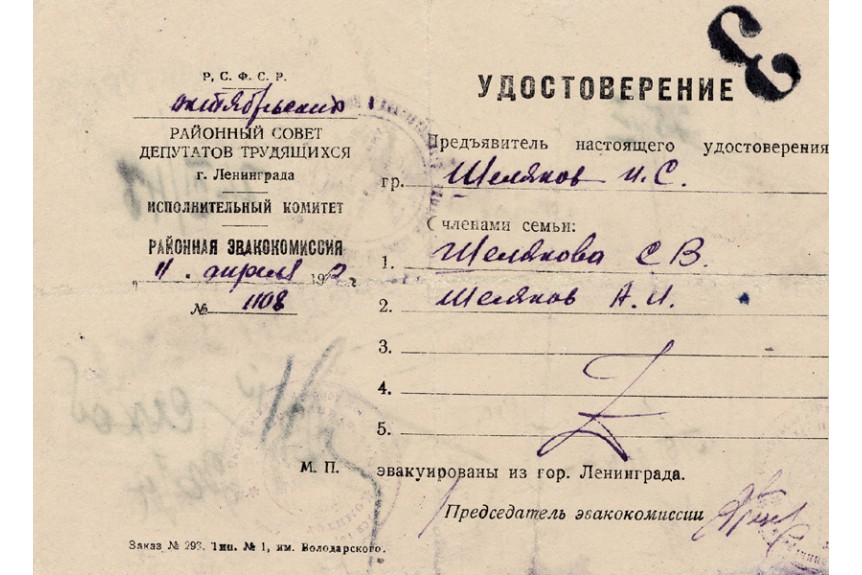 Р. С. Ф. С. Р.
октябрьский
РАЙОННЫЙ СОВЕТ
ДЕПУТАТОВ ТРУДЯЩИХСЯ
г. Ленинграда
ИСПОЛНИТЕЛЬНЫЙ КОМИТЕТ
РАЙОННАЯ ЭВАКОКОМИССИЯ
„ 11 . апреля 1942 г
№ 1108
М. П.
Заказ № 293. Тип. № 1, им. Володарского.
Э
УДОСТОВЕРЕНИЕ
Предъявитель настоящего удостоверения
гр. Шеляков И. С.
С членами семьи:
1. Шелякова С В.
2. Шеляков А. И.
3.
4.
5.
эвакуированы из гор. Ленинграда.
Председатель эвакокомиссии